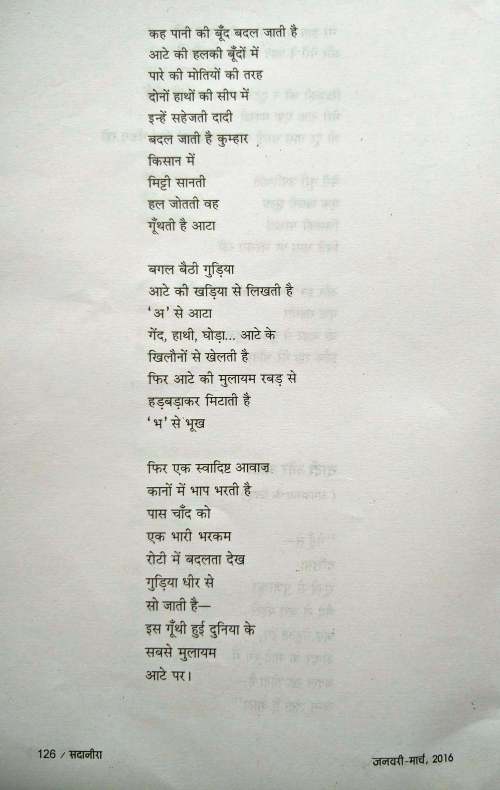 कह पानी की बूँद बदल जाती है
आटे की हलकी बूँदों में
पारे की मोतियों की तरह
दोनों हाथों की सीप में
इन्हें सहेजती दादी
बदल जाती है कुम्हार
किसान में
मिट्टी सानती
हल जोतती वह
गूँथती है आटा
बगल बैठी गुड़िया
आटे की खड़िया से लिखती है
‘अ’ से आटा
गेंद, हाथी, घोड़ा... आटे के
खिलौनों से खेलती है
फिर आटे की मुलायम रबड़ से
हड़बड़ाकर मिटाती है
‘भ’ से भूख
फिर एक स्वादिष्ट आवाज़
कानों में भाप भरती है
पास चाँद को
एक भारी भरकम
रोटी में बदलता देख
गुड़िया धीर से
सो जाती है—
इस गूँथी हुई दुनिया के
सबसे मुलायम
आटे पर।
126 / सदानीरा
जनवरी-मार्च, 2016